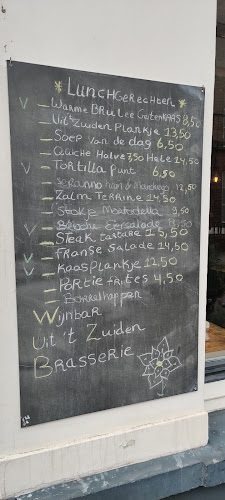 * LUNCHGERECHTEN *
V – WARME BRULEE GEITENKAAS 8,50
– UIT'T ZUIDEN PLANKJE 13,50
– SOEP VAN DE DAG 6,50
– QUICHE HALVE 7,50 HELE 14,50
V – TORTILLA PUNT 6,50
– 12,50
– ZALM TERRINE 14,50
– STOKJE MORTADELLA 9,50
V –
– STEAK TARTARE – 5,50
V – FRANSE SALADE 14,50
V – KAASPLANKJE 12,50
– PORTIE FRITES 4,50
– BORRELHAPPEN
WIJNBAR
UIT 'T ZUIDEN
BRASSERIE